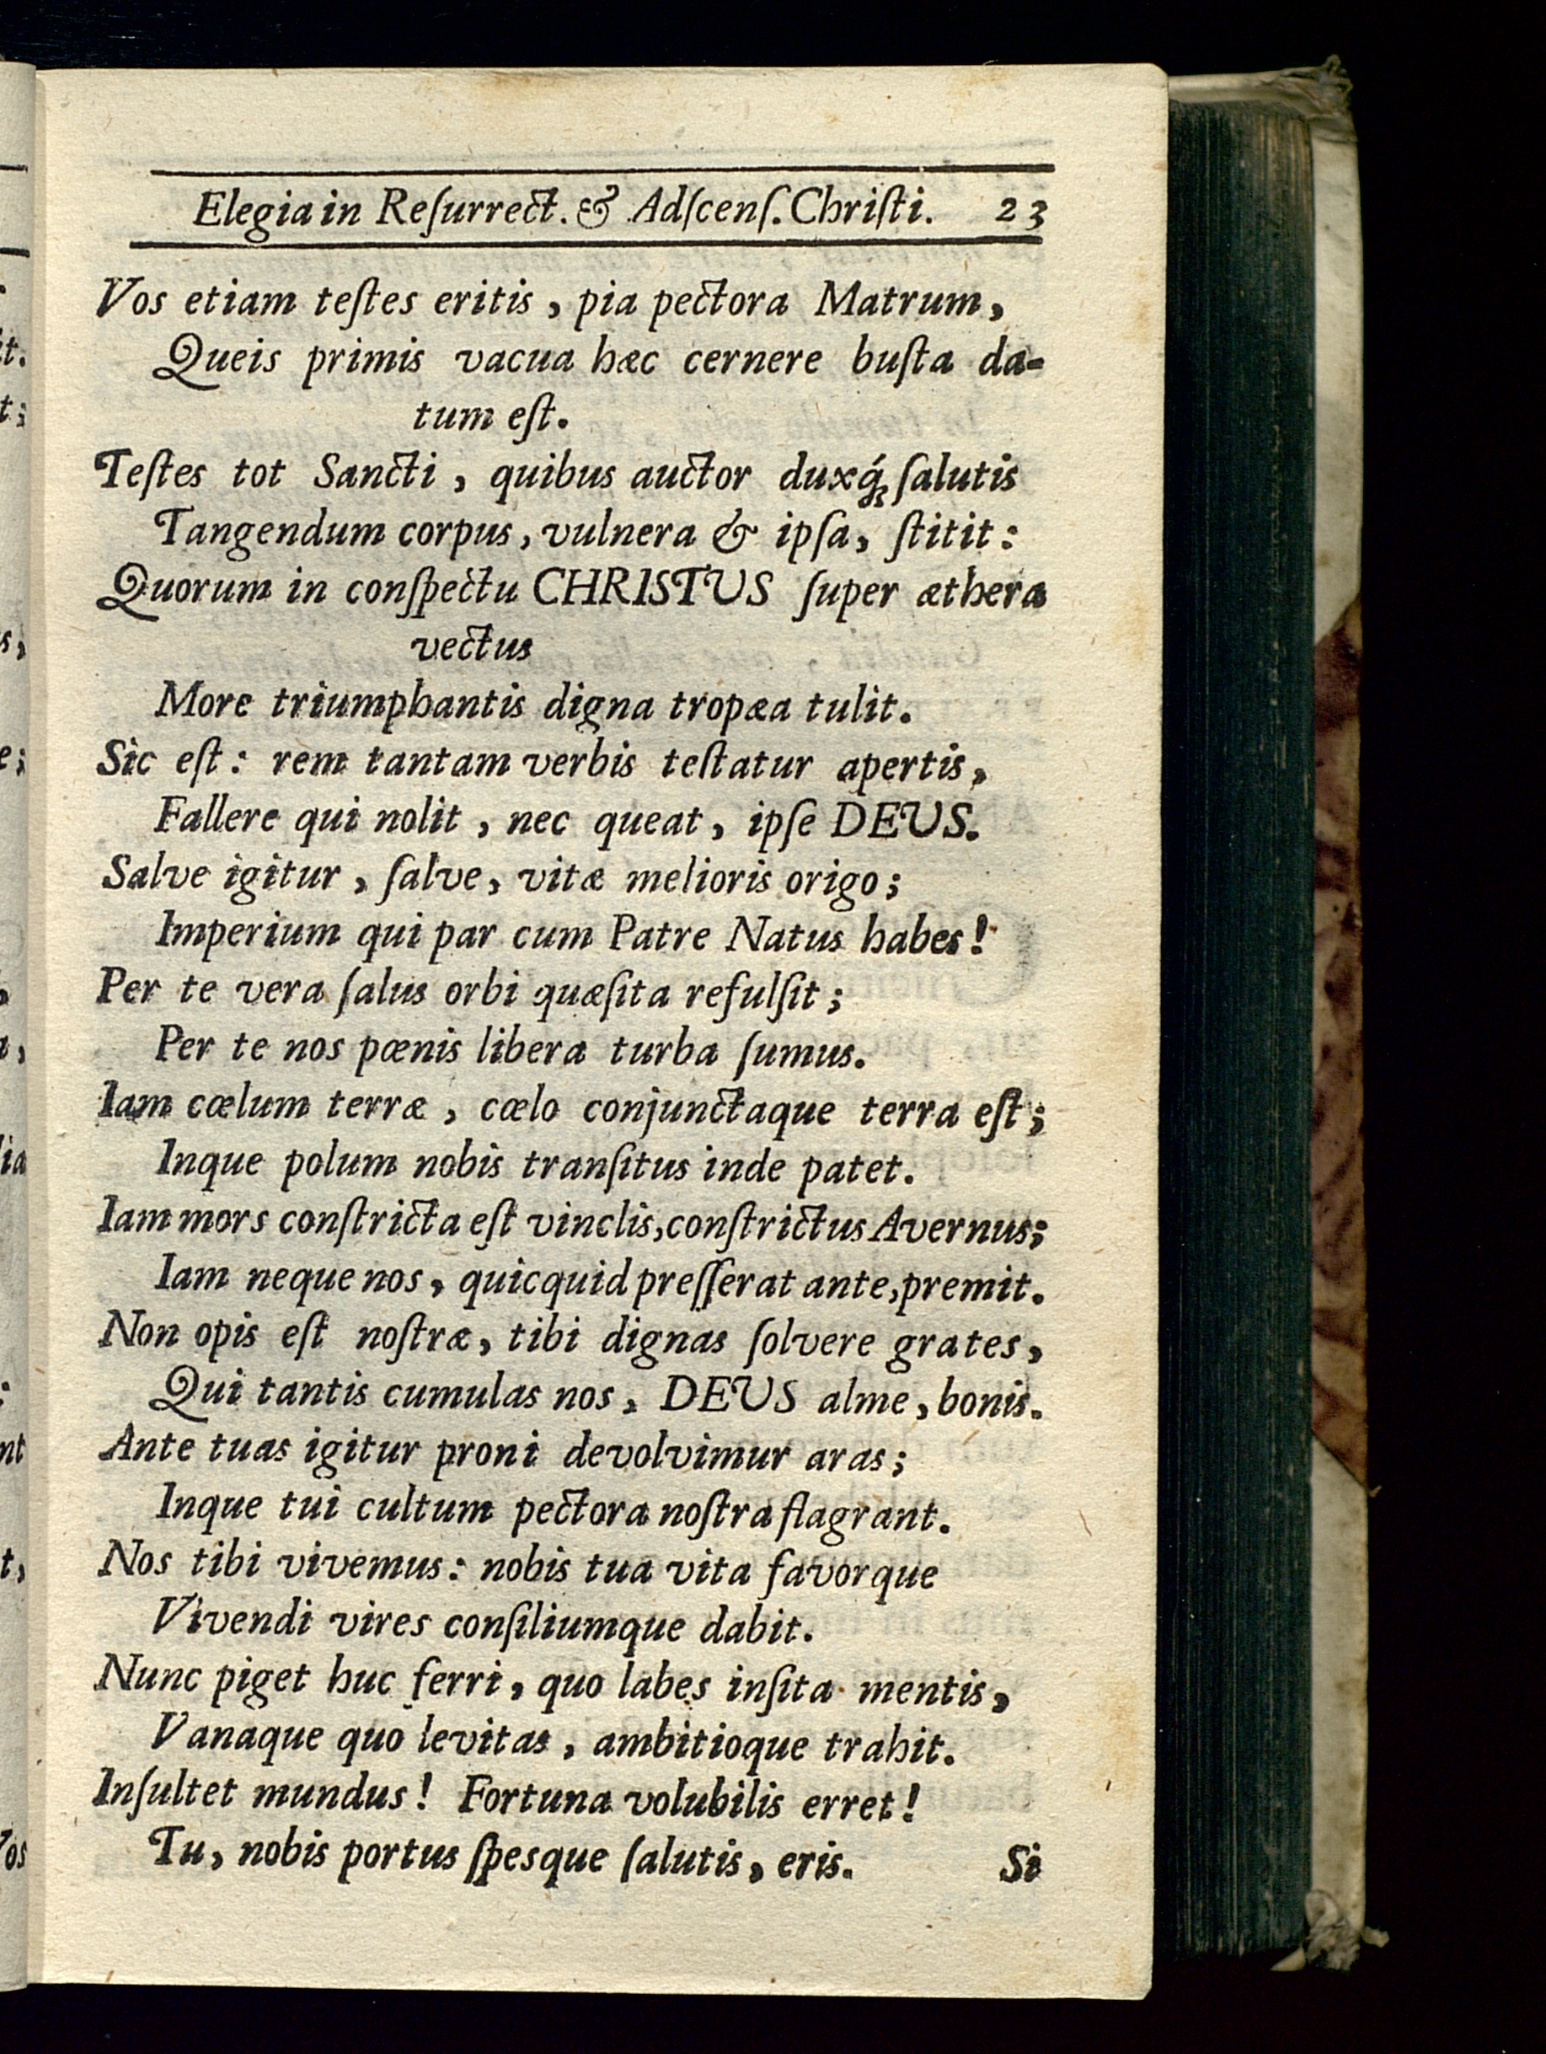 Elegia in Reſurrect. & Adſcenſ. Chriſti. 23
Vos etiam teſtes eritis, pia pectora Matrum,
Queis primis vacua hæc cernere buſta da-
tum eſt.
Teſtes tot Sancti, quibus auctor duxq́; ſalutis
Tangendum corpus, vulnera & ipſa, ſtitit:
Quorum in conſpectu CHRISTUS ſuper æthera
vectus
More triumphantis digna tropæa tulit.
Sic eſt: rem tantam verbis teſtatur apertis,
Fallere qui nolit, nec queat, ipſe DEUS.
Salve igitur, ſalve, vitæ melioris origo;
Imperium qui par cum Patre Natus habes!
Per te vera ſalus orbi quæſita refulſit;
Per te nos pœnis libera turba ſumus.
Iam cœlum terræ, cœlo conjunctaque terra eſt;
Inque polum nobis tranſitus inde patet.
Iam mors conſtricta eſt vinclis, conſtrictus Avernus;
Iam neque nos, quicquid preſſerat ante, premit.
Non opis eſt noſtræ, tibi dignas ſolvere grates,
Qui tantis cumulas nos, DEUS alme, bonis.
Ante tuas igitur proni devolvimur aras;
Inque tui cultum pectora noſtra flagrant.
Nos tibi vivemus: nobis tua vita favorque
Vivendi vires conſiliumque dabit.
Nunc piget huc ferri, quo labes inſita mentis,
Vanaque quo levitas, ambitioque trahit.
Inſultet mundus! Fortuna volubilis erret!
Tu, nobis portus ſpesque ſalutis, eris.
Si